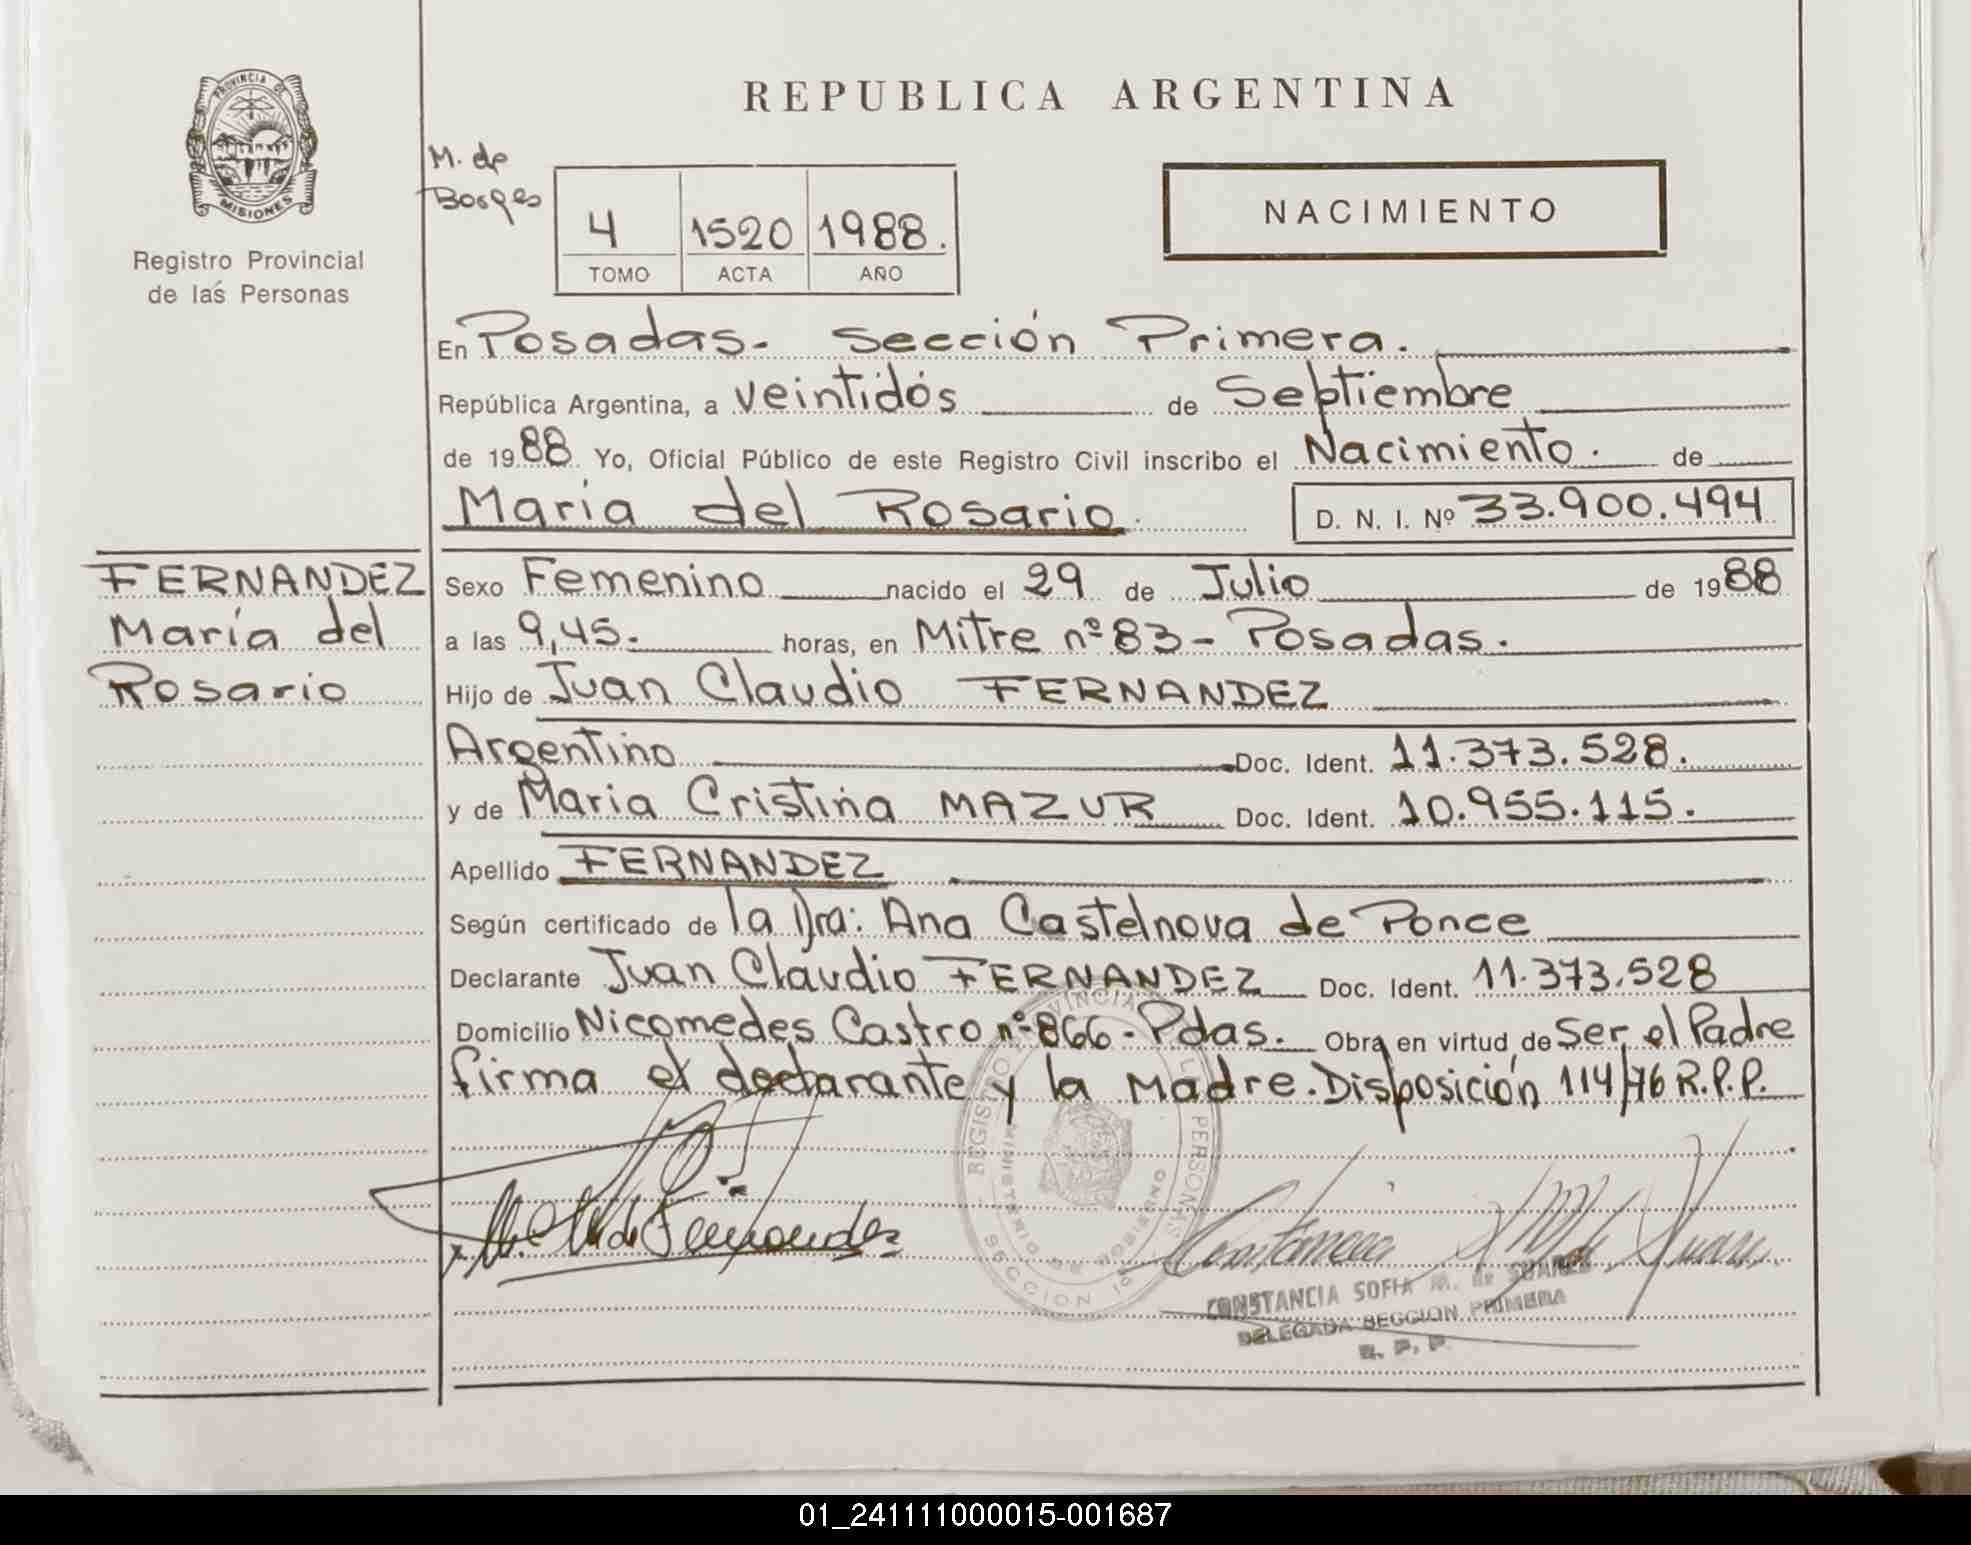 REPUBLICA ARGENTINA
PROVINCIA DE
MISIONES
Registro Provincial
de las Personas
M. de
Borges
4 1520 1988.
TOMO ACTA AÑO
NACIMIENTO
En Posadas. Sección Primera.
República Argentina, a veintidós de Septiembre
de 1988 Yo, Oficial Público de este Registro Civil inscribo el Nacimiento. de
María del Rosario. D. N. I. Nº 33.900.494
FERNANDEZ
María del
Rosario
Sexo Femenino nacido el 29 de Julio de 1988
a las 9,45. horas, en Mitre nº 83 - Posadas.
Hijo de Juan Claudio FERNANDEZ
Argentino Doc. Ident. 11.373.528.
y de Maria Cristina MAZUR Doc. Ident. 10.955.115.
Apellido FERNANDEZ
Según certificado de la Dra: Ana Castelnova de Ponce
Declarante Juan Claudio FERNANDEZ Doc. Ident. 11.373.528
Domicilio Nicomedes Castro nº 866 - Pdas. Obra en virtud de Ser el Padre
firma el declarante y la Madre. Disposición 114/76 R.P.P.
REGISTRO PROVINCIAL DE LAS PERSONAS
MINISTERIO DE GOBIERNO
SECCION 1º
de Fernandez
Constancia M. de Suarez
CONSTANCIA SOFIA M. de SUAREZ
DELEGADA SECCION PRIMERA
R. P. P.
01_241111000015-001687